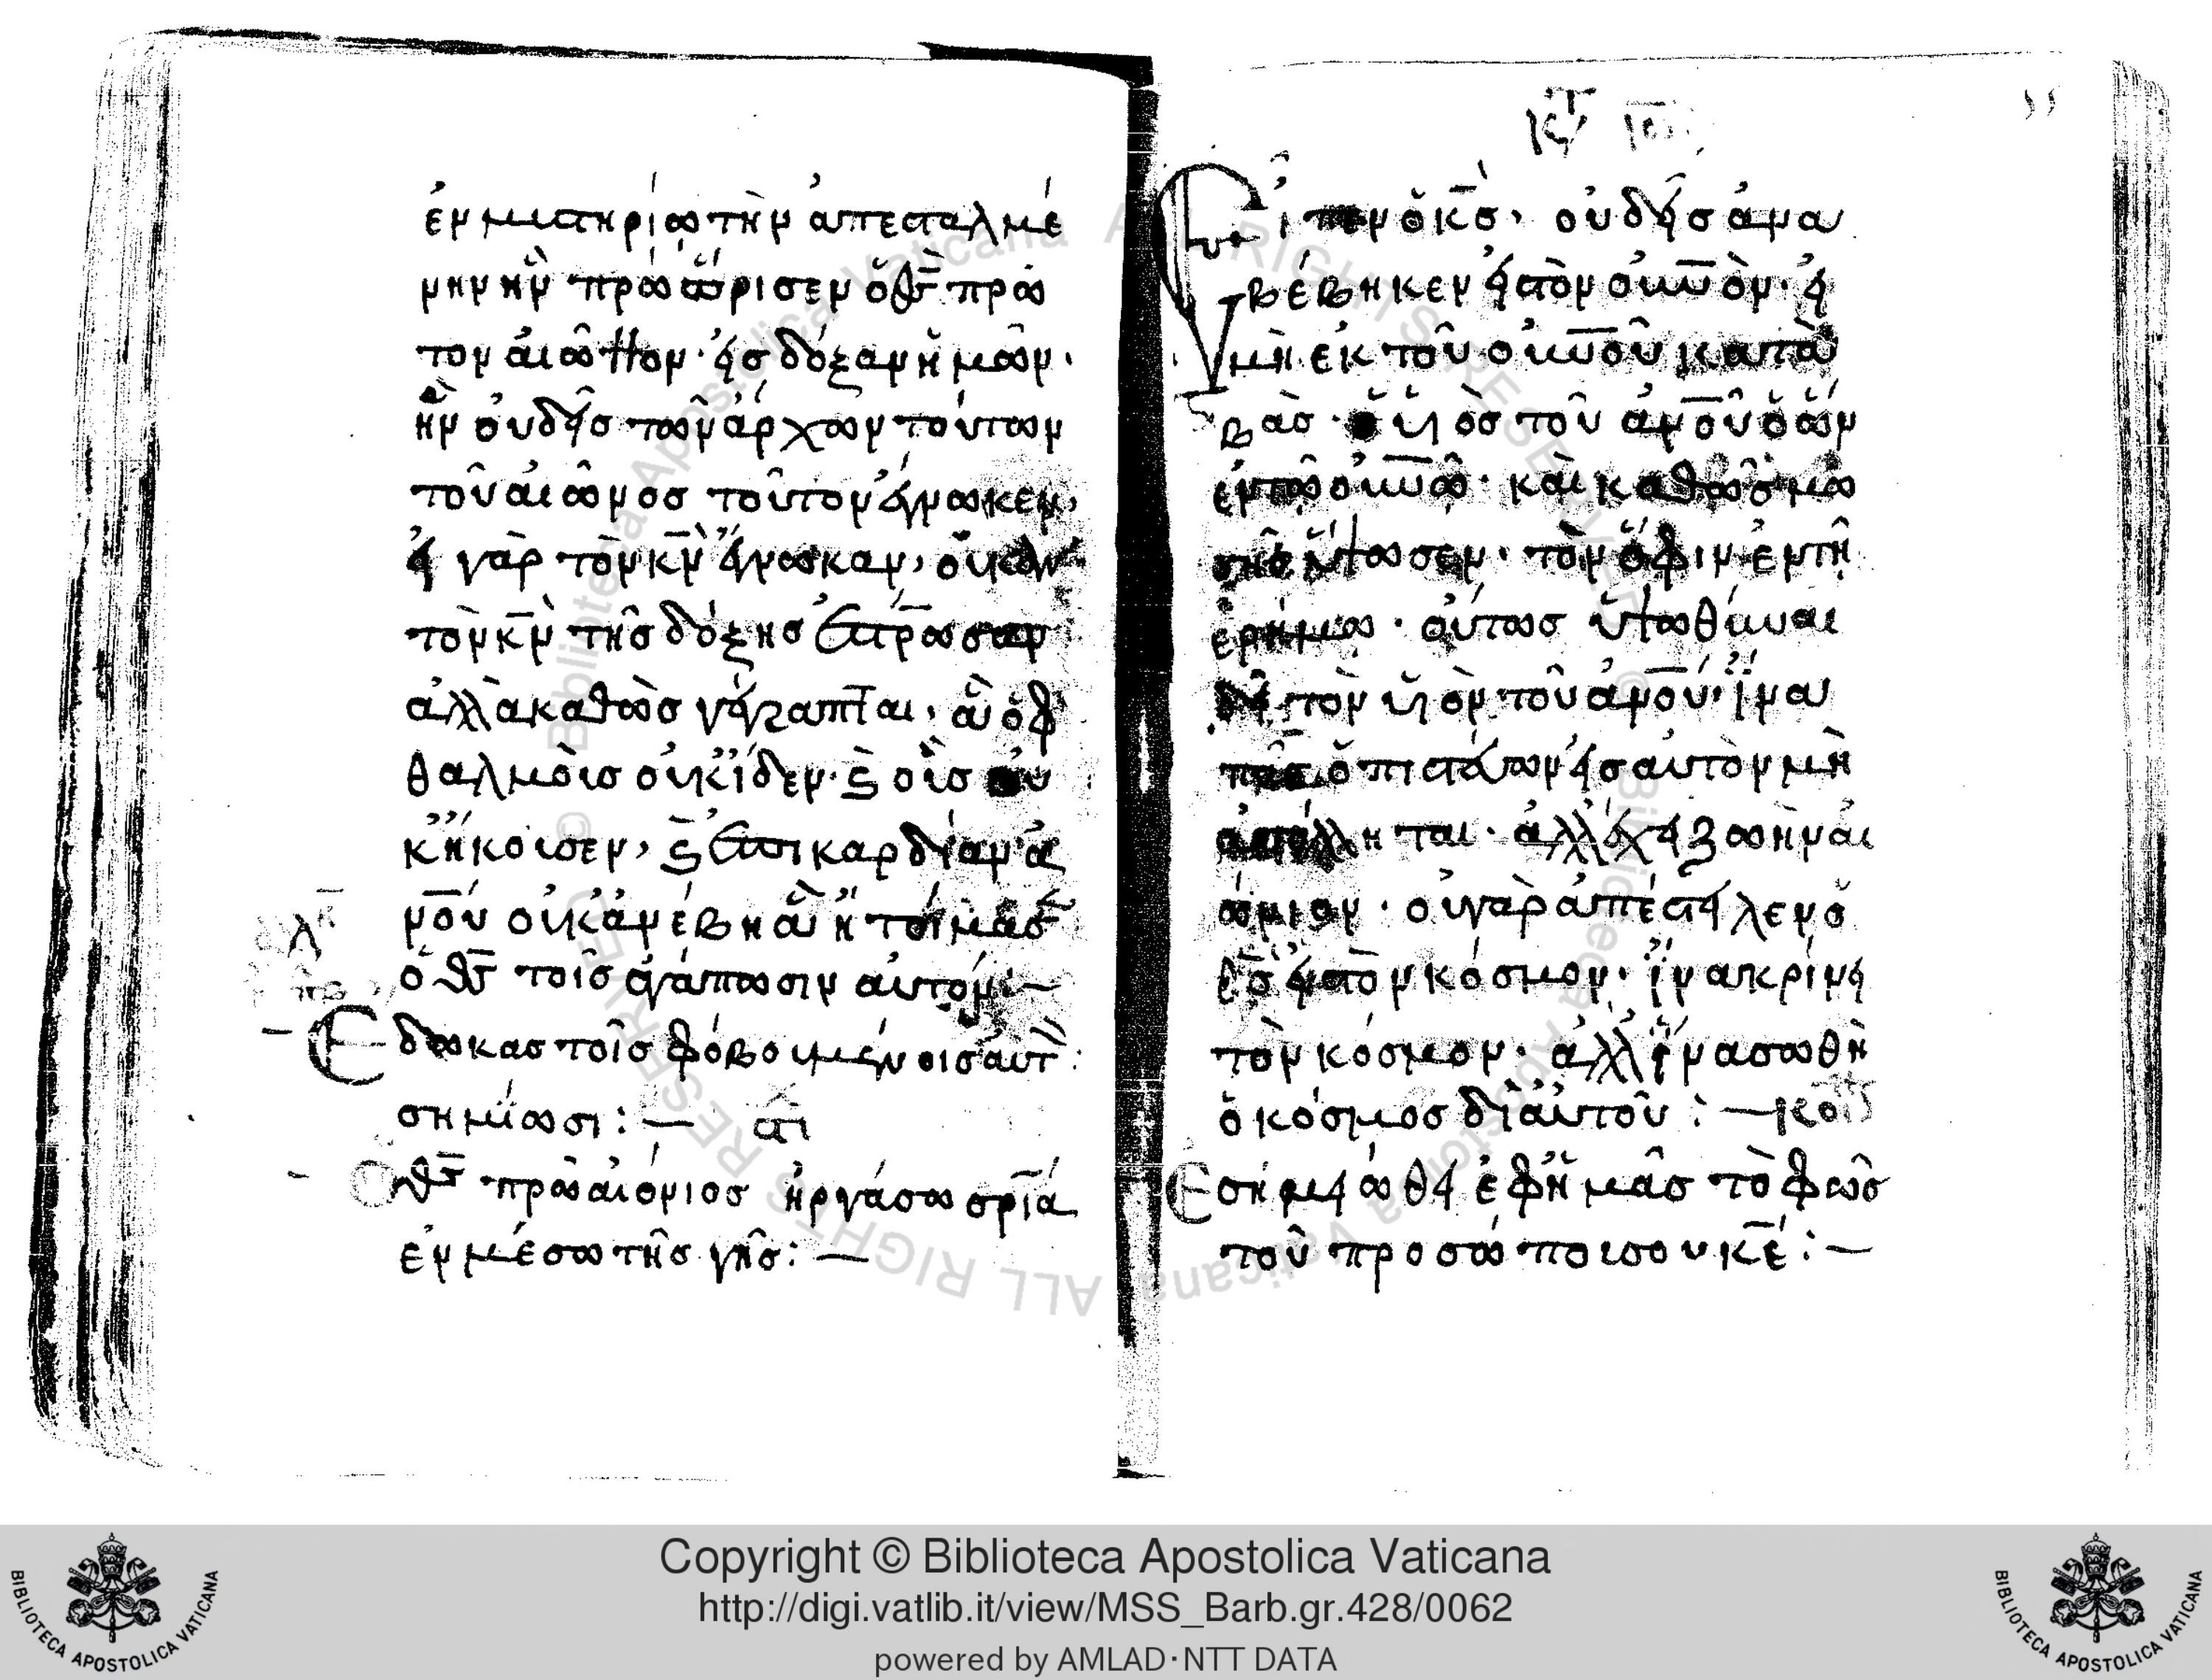 ἐν μιστηρίω τὴν ἀπεσταλμέ
νην ἣν πρώὥρισεν ὁ θς πρὼ
τον αἰῶννον· εἰσ δόξαν ἡμῶν·
ἣν οὐδεῖσ τῶν ἀρχώντούτων
τοῦ αἰῶνοσ τοῦτον ἔγνωκεν,
εἰ γὰρ τὸν κν ἔγνωσκαν, οὐκ ἂν
τὸν κν τῆσ δόξησ ἐστρωσαν
ἀλλὰ καθὼσ γέγραπται, ἃ ὀφ
θαλμὸισ οὐκ ἴδεν· ϛ οὖσ οὐ
κ ἤκουσεν, ϛ ἐπι καρδίαν ἀ
νου οὐκ ἀνέβη ἃ ἡτοίμασ
ὁ θς τοῖσ ἀγαπῶσιν αὐτόν:—
Εδωκασ τοῖσ φόβουμένοισ αὐτ:
σημίωσι:— στι
Ο θς πρὼ αἰόνιοσ ἠργάσω σρία
ἐν μέσω τῆσ γῆσ:—
κτ ιω
Εἶπεν ὁ κς, οὐδεὶσ ἀνα
βέβηκεν εἰσ τὸν οὐνον· εἰ
μὴ ἐκ τοῦ οὐνοῦ κατὰ
βὰσ· ὁ ὑιὸσ τοῦ ἀνοῦ ὁ ὢν
ἐν τῶ οὐνῶ· καὶ καθῶσ μω
σῆσ ὕψωσεν· τὸν ὄφιν ἐν τῆ
ἐρήμω· οὕτωσ ὑψωθῆναι
δεῖ τὸν ὑιὸν τοῦ ἀνοῦ· ἵνα
πᾶσ ὁ πιστεύων εἰσ αὐτὸν μὴ
ἀπόλληται· ἀλλ ἔχει ζωὴν αἰ
ώνιον· οὐ γὰρ ἀπέστειλεν ὁ
θς εἰσ τὸν κόσμον· ἵνα κρίνει
τὸν κόσμον· ἀλλ ἵνα σωθὴ
ὁ κόσμοσ δι ἀυτοῦ:— κοι
Εσημειώθει ἐφ ἡμᾶσ τὸ φῶσ
τοῦ προσώπου σου κε:—
Copyright © Biblioteca Apostolica Vaticana
http://digi.vatlib.it/view/MSS_Barb.gr.428/0062
powered by AMLAD·NTT DATA
BIBLIOTECA APOSTOLICA VATICANA
BIBLIOTECA APOSTOLICA VATICANA